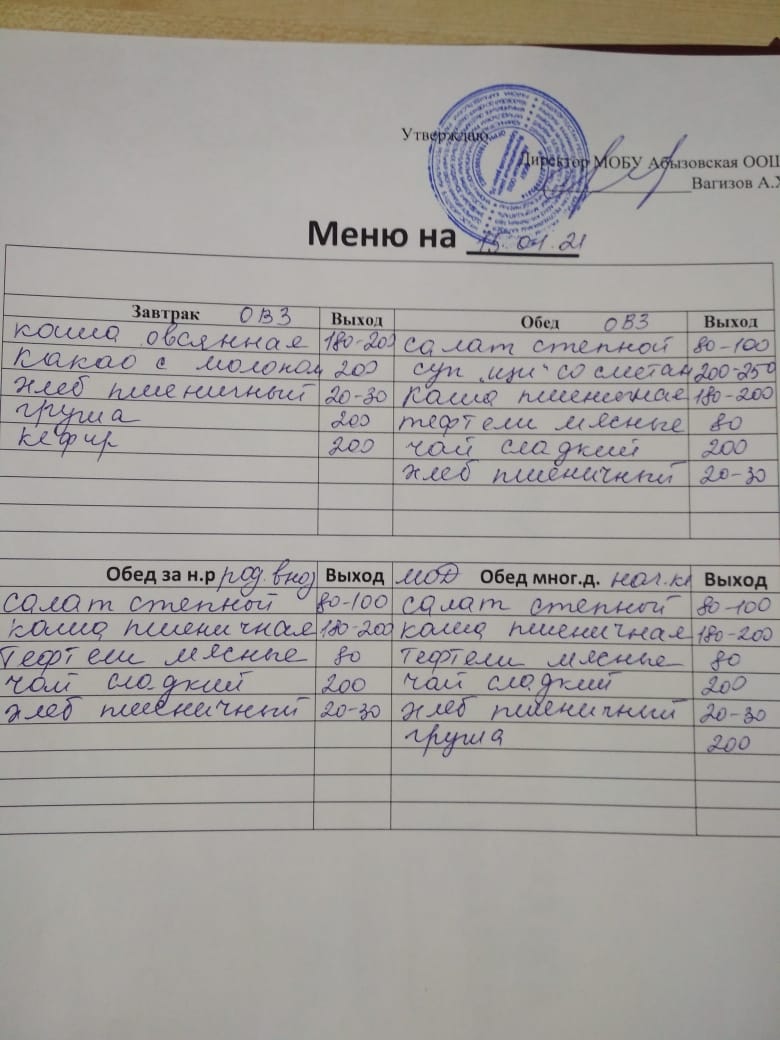 Утверждаю
Директор МОБУ Абызовская ООШ
Вагизов А.Х
Меню на 15.04.21
Завтрак ОВЗ Выход Обед ОВЗ Выход
каша овсянная 180-200 салат степной 80-100
какао с молоком 200 суп "щи" со сметан 200-250
хлеб пшеничный 20-30 каша пшеничная 180-200
груша 200 тефтели мясные 80
кефир 200 чай сладкий 200
хлеб пшеничный 20-30
Обед за н.р род. взнос Выход МОД Обед мног.д. нач.кл Выход
салат степной 80-100 салат степной 80-100
каша пшеничная 180-200 каша пшеничная 180-200
Тефтели мясные 80 Тефтели мясные 80
чай сладкий 200 чай сладкий 200
хлеб пшеничный 20-30 хлеб пшеничный 20-30
груша 200